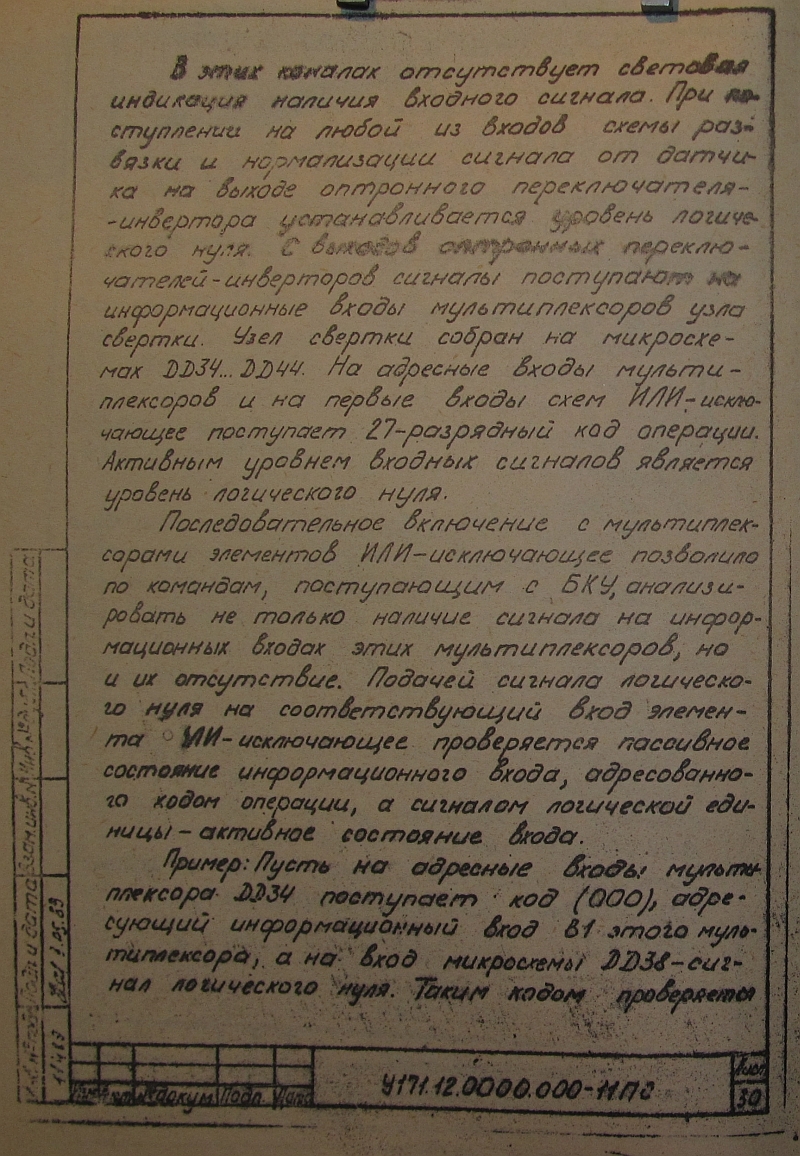 В этих каналах отсутствует световая
индикация наличия входного сигнала. При по-
ступлении на любой из входов схемы раз-
вязки и нормализации сигнала от датчи-
ка на выходе оптронного переключателя-
-инвертора устанавливается уровень логиче-
ского нуля. С выходов оптронных переклю-
чателей-инверторов сигналы поступают на
информационные входы мультиплексоров узла
свертки. Узел свертки собран на микросхе-
мах DD34...DD44. На адресные входы мульти-
плексоров и на первые входы схем ИЛИ-исклю-
чающее поступает 27-разрядный код операции.
Активным уровнем входных сигналов является
уровень логического нуля.
Последовательное включение с мультиплек-
сорами элементов ИЛИ-исключающее позволило
по командам, поступающим с БКУ, анализи-
ровать не только наличие сигнала на инфор-
мационных входах этих мультиплексоров, но
и их отсутствие. Подачей сигнала логическо-
го нуля на соответствующий вход элемен-
та ИЛИ-исключающее проверяется пассивное
состояние информационного входа, адресованно-
го кодом операции, а сигналом логической еди-
ницы-активное состояние входа.
Пример: Пусть на адресные входы мульти-
плексора DD34 поступает код (000), адре-
сующий информационный вход B1 этого муль-
типлексора, а на вход микросхемы DD38-сиг-
нал логического нуля. Таким кодом проверяется
У171.12.0000.000-11ПС
Лист
30
№ докум Подп Дата
Подп и дата
Взам. инв. №
Подп и дата